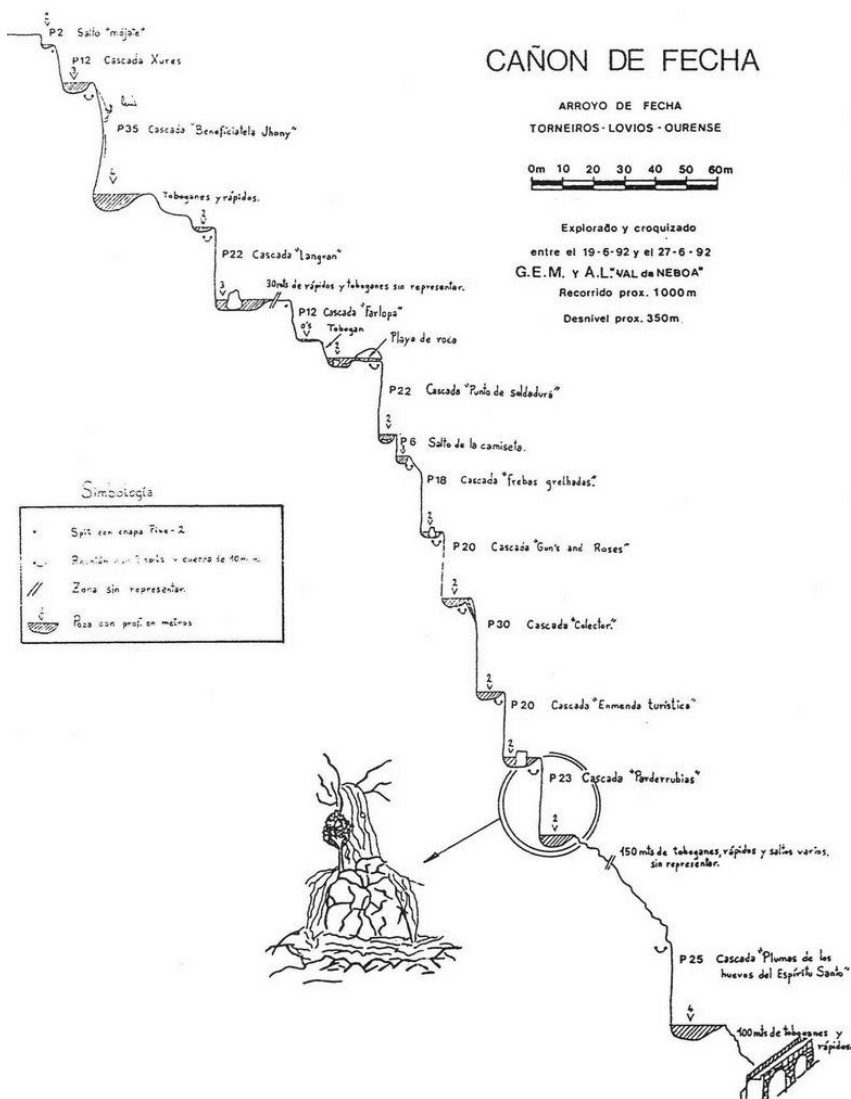 CAÑON DE FECHA
ARROYO DE FECHA
TORNEIROS - LOVIOS - OURENSE
0m 10 20 30 40 50 60m
Explorado y croquizado
entre el 19-6-92 y el 27-6-92
G.E.M. Y A.L."VAL de NEBOA"
Recorrido prox. 1000m
Desnivel prox. 350m.
P2 Salto "mójate"
P12 Cascada Xures
3
P35 Cascada "Beneficiatela Jhony"
Toboganes y rápidos.
2
P22 Cascada "Langran"
3
30 mts de rápidos y toboganes sin representar.
P12 Cascada "Farlopa"
0'5
Tobogan
2
Playa de roca
P22 Cascada "Punto de soldadura"
2
P6 Salto de la camiseta.
3
P18 Cascada "Frebas grelhadas"
2
P20 Cascada "Gun's and Roses"
2
P30 Cascada "Colector."
2
P20 Cascada "Enmenda turística"
2
P23 Cascada "Parderrubias"
2
150 mts de toboganes, rápidos y saltos varios,
sin representar.
P25 Cascada "Plumas de los
huevos del Espíritu Santo"
4
100 mts de toboganes y
rápidos.
Simbología
Spit con chapa Fixe-2
cuerda de 10m.m.
Zona sin representar.
Poza con prof. en metros